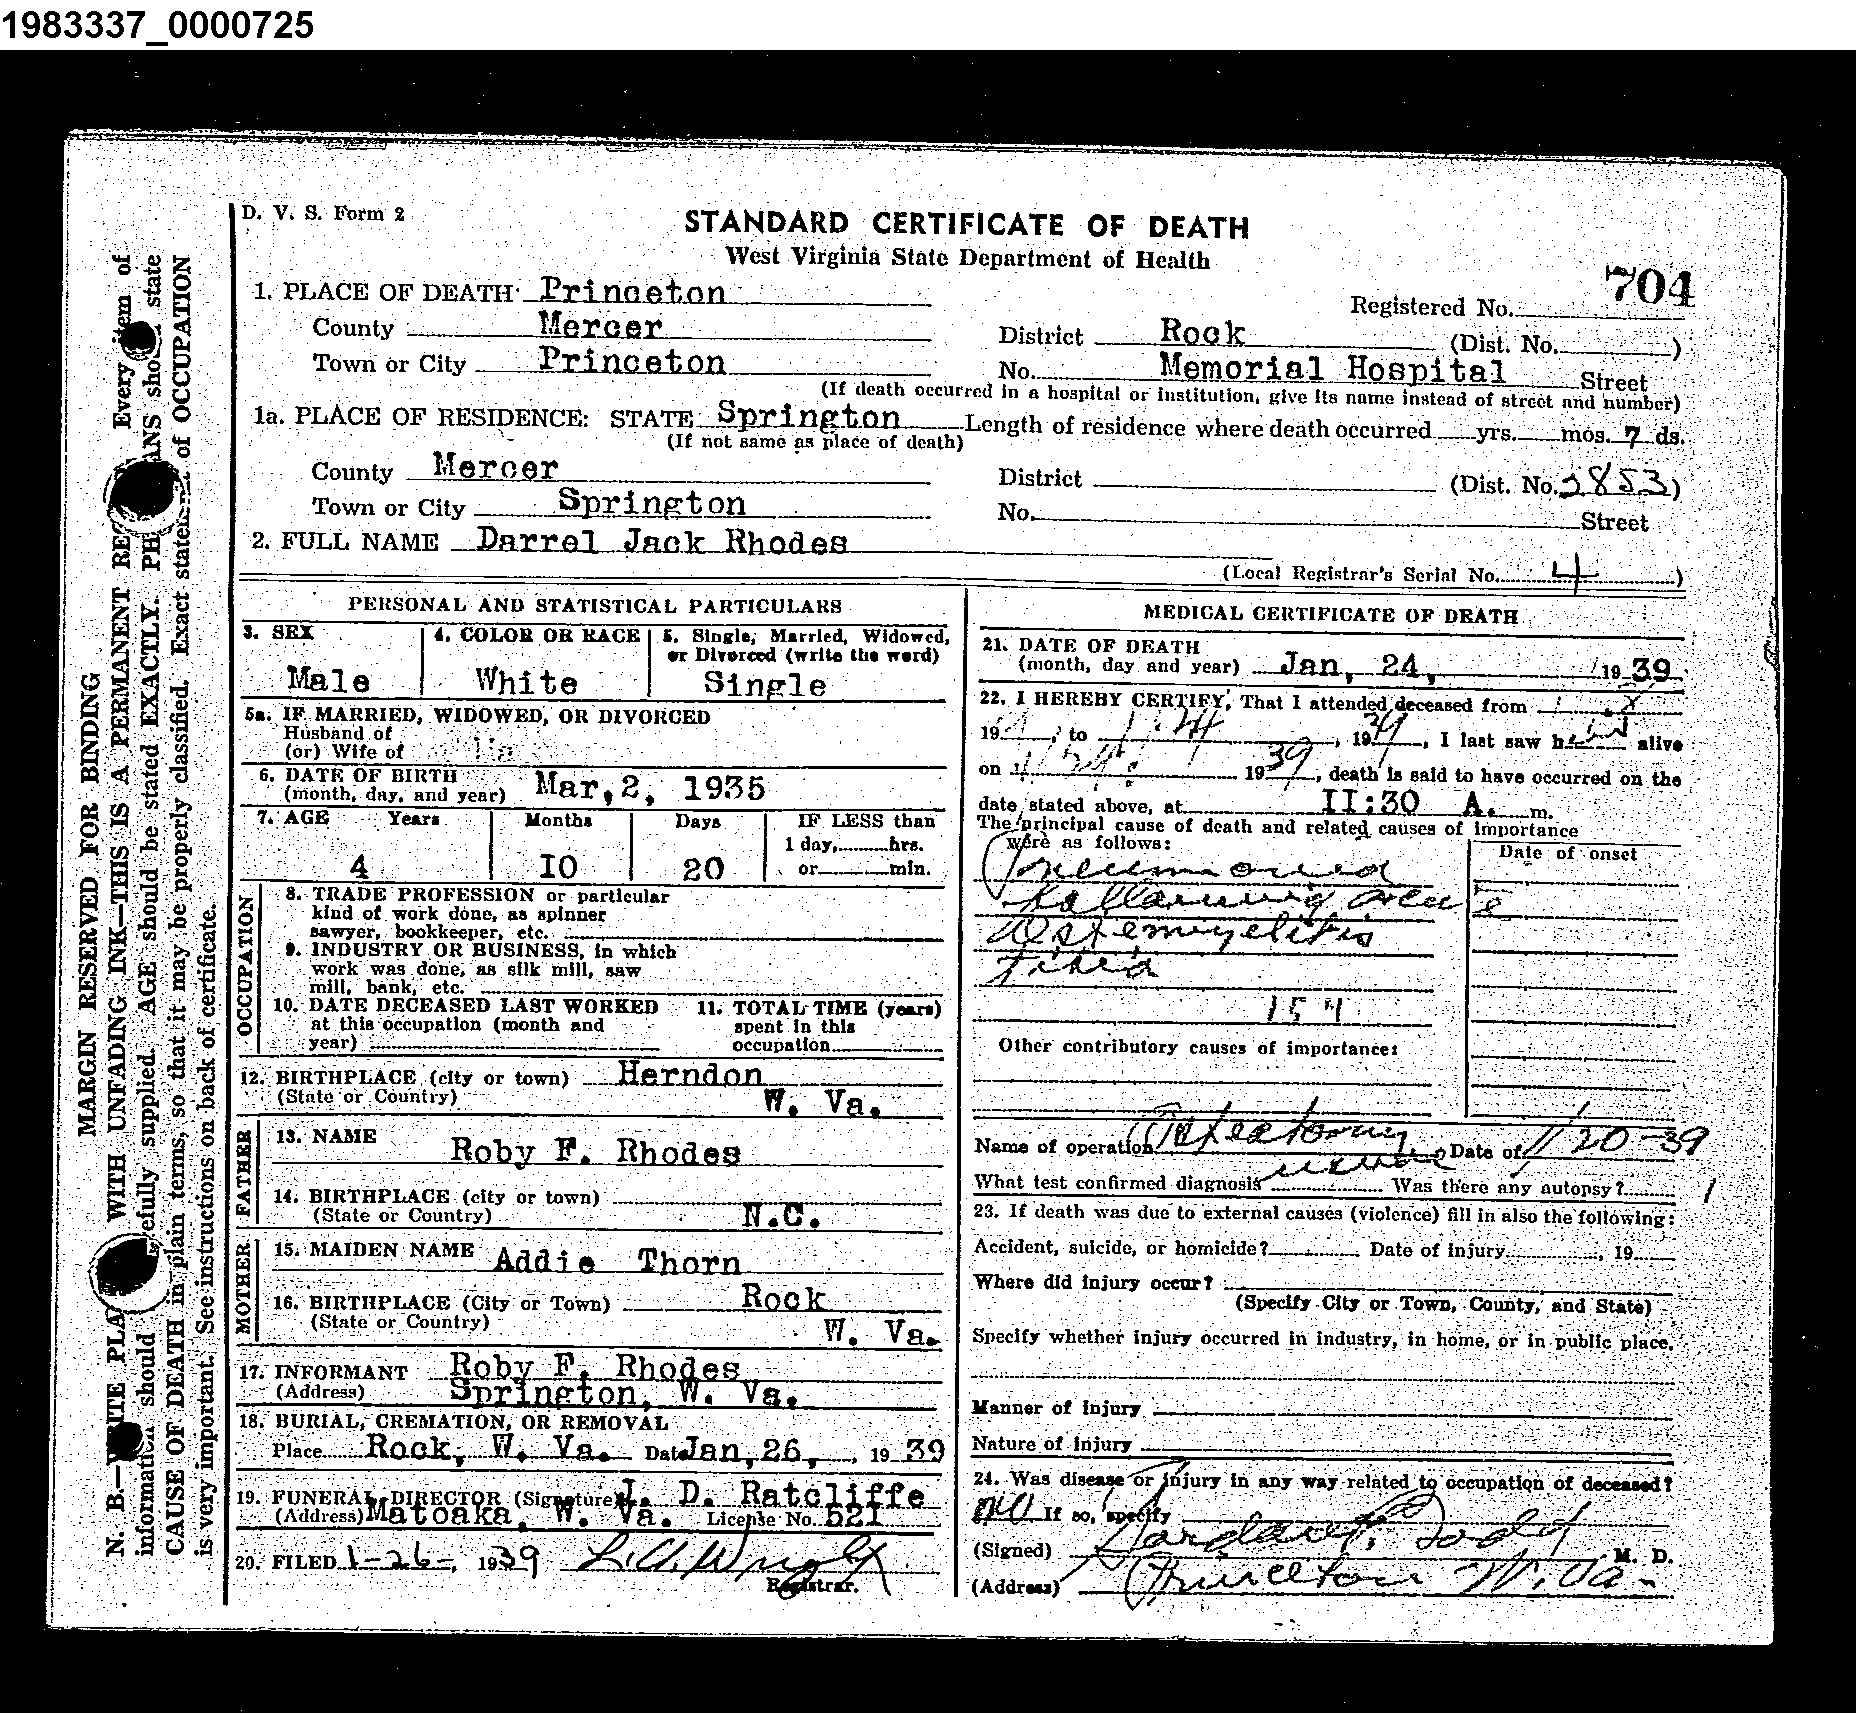 1983337_0000725
D. V. S. Form 2
STANDARD CERTIFICATE OF DEATH
West Virginia State Department of Health
704
1. PLACE OF DEATH Princeton
Registered No.
County Mercer
District Rock (Dist. No. )
Town or City Princeton
No. Memorial Hospital Street
(If death occurred in a hospital or institution, give its name instead of street and number)
1a. PLACE OF RESIDENCE: STATE Springton Length of residence where death occurred yrs. mos. 7 ds.
(If not same as place of death)
County Mercer
District (Dist. No. 2853)
Town or City Springton
No. Street
2. FULL NAME Darrel Jack Rhodes
(Local Registrar's Serial No. 4 )
PERSONAL AND STATISTICAL PARTICULARS
3. SEX 4. COLOR OR RACE 5. Single, Married, Widowed,
or Divorced (write the word)
Male White Single
5a. IF MARRIED, WIDOWED, OR DIVORCED
Husband of
(or) Wife of
6. DATE OF BIRTH
(month, day, and year) Mar,2, 1935
7. AGE Years Months Days IF LESS than
1 day, hrs.
or min.
4 IO 20
OCCUPATION
8. TRADE PROFESSION or particular
kind of work done, as spinner
sawyer, bookkeeper, etc.
9. INDUSTRY OR BUSINESS, in which
work was done, as silk mill, saw
mill, bank, etc.
10. DATE DECEASED LAST WORKED
at this occupation (month and
year)
11. TOTAL TIME (years)
spent in this
occupation
12. BIRTHPLACE (city or town) Herndon
(State or Country) W. Va.
FATHER
13. NAME Roby F. Rhodes
14. BIRTHPLACE (city or town)
(State or Country) N.C.
MOTHER
15. MAIDEN NAME Addie Thorn
16. BIRTHPLACE (City or Town) Rock
(State or Country) W. Va.
17. INFORMANT Roby F. Rhodes
(Address) Springton, W. Va.
18. BURIAL, CREMATION, OR REMOVAL
Place Rock, W. Va. Date Jan,26, 19 39
19. FUNERAL DIRECTOR (Signature) J. D. Ratcliffe
(Address) Matoaka, W. Va. License No. 521
20. FILED 1-26-, 1939 L.A. Wright
Registrar.
MEDICAL CERTIFICATE OF DEATH
21. DATE OF DEATH
(month, day and year) Jan, 24, 19 39
22. I HEREBY CERTIFY, That I attended deceased from
19 , to , 19 , I last saw h alive
on 1939, death is said to have occurred on the
date stated above, at II:30 A. m.
The principal cause of death and related causes of importance
were as follows:
Date of onset
Pneumonia
following acute
Osteomyelitis
Tibia
Other contributory causes of importance:
Name of operation Date of 1/20-39
What test confirmed diagnosis Was there any autopsy?
23. If death was due to external causes (violence) fill in also the following:
Accident, suicide, or homicide? Date of injury , 19
Where did injury occur?
(Specify City or Town, County, and State)
Specify whether injury occurred in industry, in home, or in public place.
Manner of injury
Nature of injury
24. Was disease or injury in any way related to occupation of deceased?
no If so, specify
(Signed) M. D.
(Address) Princeton W. Va-
MARGIN RESERVED FOR BINDING
WITH UNFADING INK—THIS IS A PERMANENT Every item of
should supplied. AGE should be stated EXACTLY. state
CAUSE OF DEATH in plain terms, so that it may be properly classified. Exact of OCCUPATION
is very important. See instructions on back of certificate.